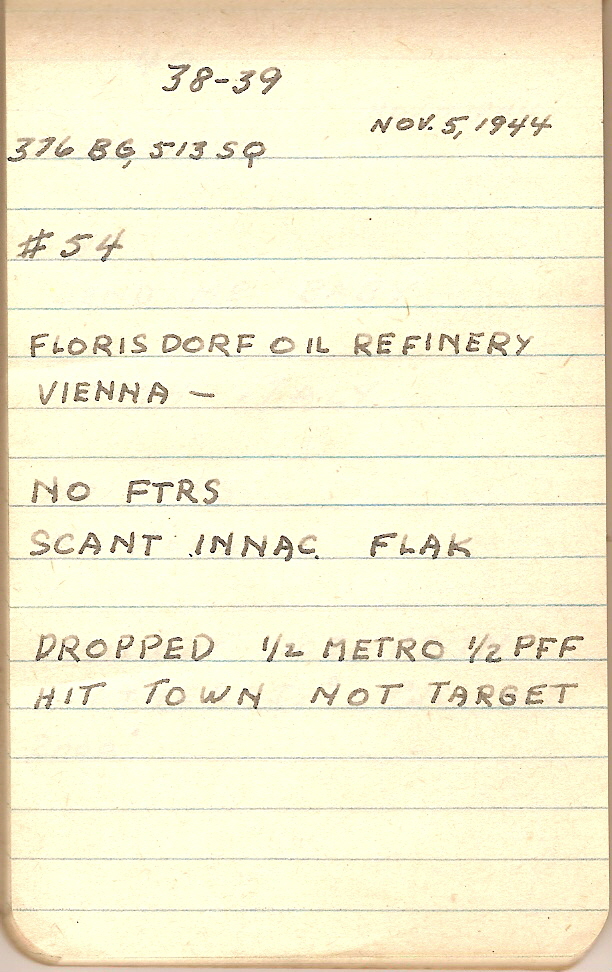 38-39
NOV. 5, 1944
376 BG, 513 SQ
#54
FLORISDORF OIL REFINERY
VIENNA —
NO FTRS
SCANT INNAC. FLAK
DROPPED 1/2 METRO 1/2 PFF
HIT TOWN NOT TARGET